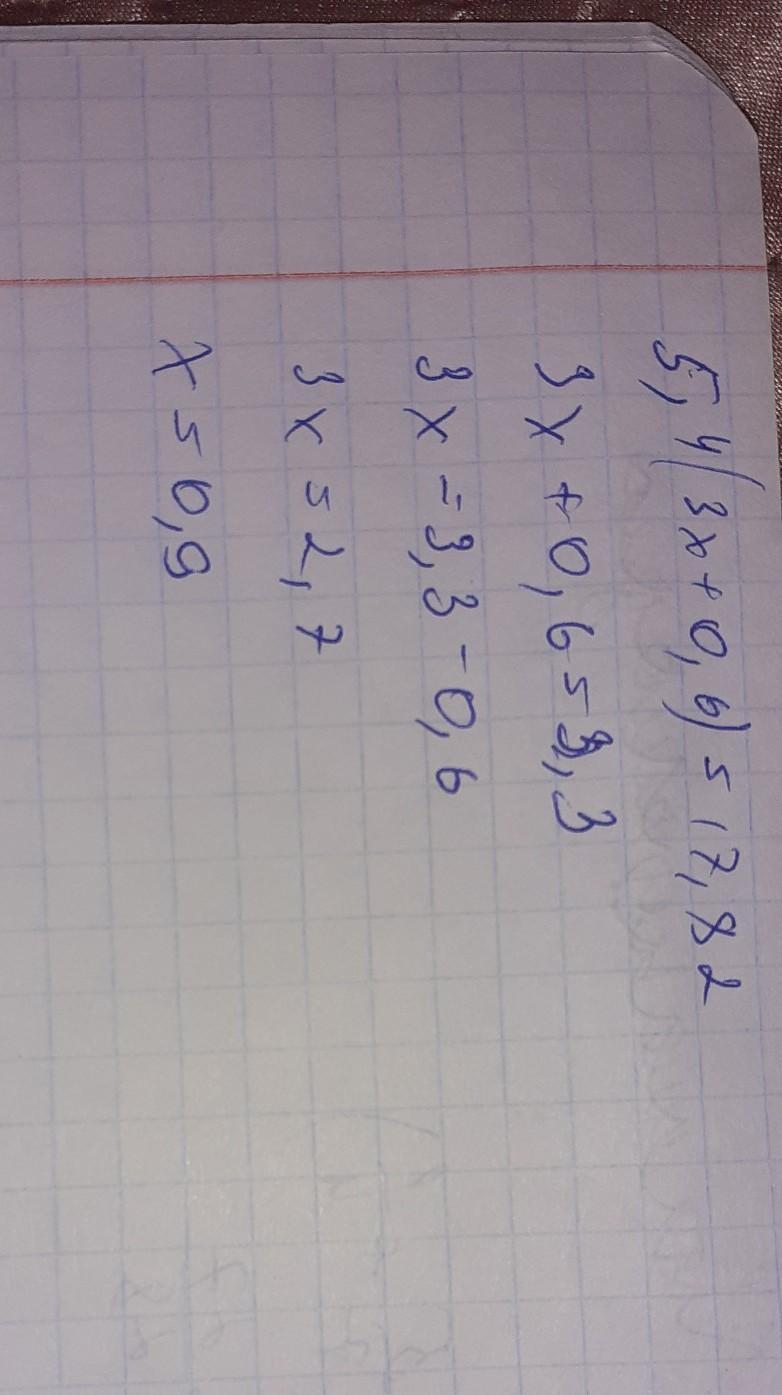 5,4(3x+0,6)=17,82
3x+0,6=3,3
3x=3,3-0,6
3x=2,7
x=0,9